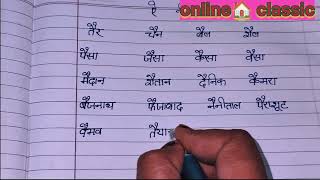 online🏠 classic
तैर चैन बैल शैल
पैसा जैसा कैसा वैसा
मैदान शैतान दैनिक कैमरा
बैजनाथ फैजावाद नैनीताल पैराशूट
वैभव तैया